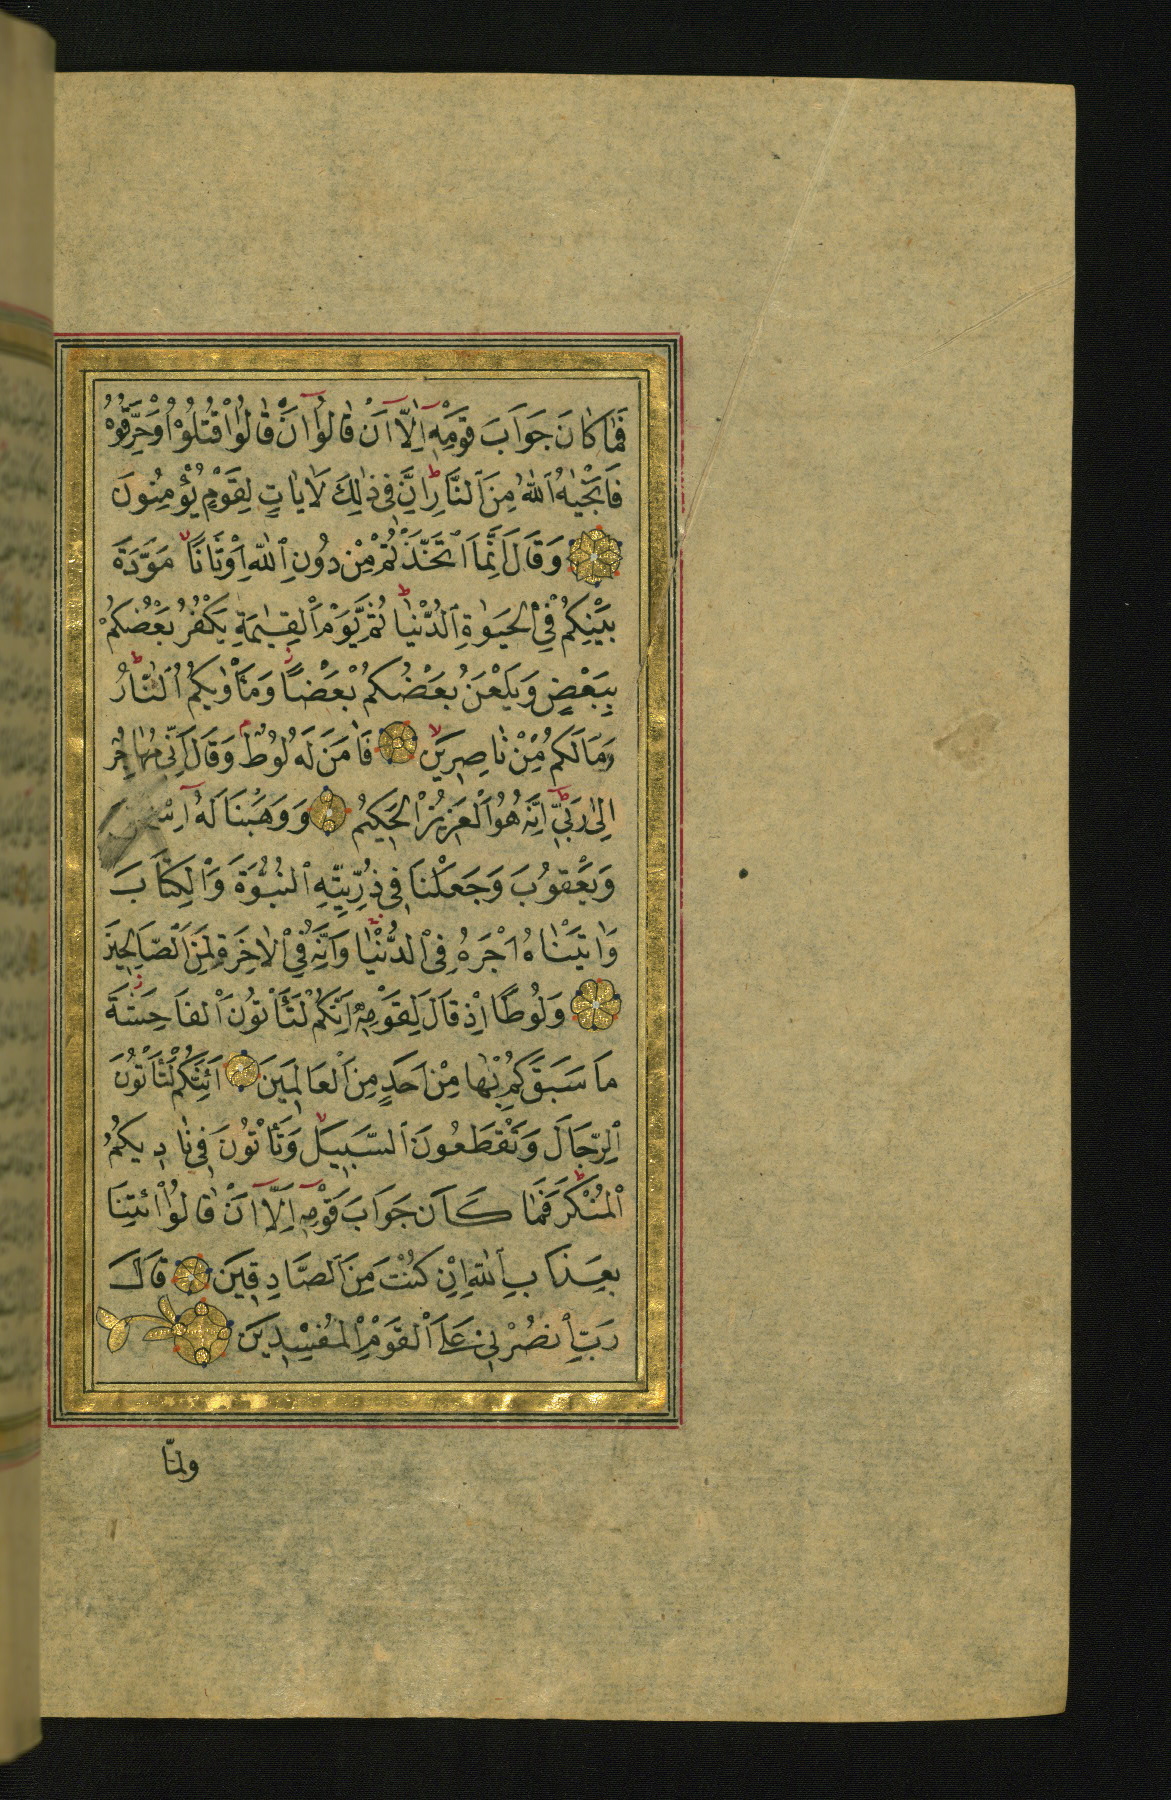 فَمَا كَانَ جَوَابَ قَوْمِهٖٓ اِلَّٓا اَنْ قَالُوٓا اَنْ قَالُوا اقْتُلُوْهُ اَوْ حَرِّقُوْهُ
فَاَنْجٰيهُ اللّٰهُ مِنَ النَّارِ اِنَّ فِى ذٰلِكَ لَاٰيَاتٍ لِقَوْمٍ يُؤْمِنُونَ
وَقَالَ اِنَّمَا اتَّخَذْتُمْ مِنْ دُونِ اللّٰهِ اَوْثَانًا مَوَدَّةَ
بَيْنِكُمْ فِى الْحَيٰوةِ الدُّنْيَا ثُمَّ يَوْمَ الْقِيٰمَةِ يَكْفُرُ بَعْضُكُمْ
بِبَعْضٍ وَيَلْعَنُ بَعْضُكُمْ بَعْضًا وَمَاْوٰيكُمُ النَّارُ
وَمَا لَكُمْ مِنْ نَاصِرِينَ فَاٰمَنَ لَهُ لُوطٌ وَقَالَ اِنِّى مُهَاجِرٌ
اِلٰى رَبِّىٓ اِنَّهُ هُوَ الْعَزِيزُ الْحَكِيمُ وَوَهَبْنَا لَهُٓ اِسْحٰقَ
وَيَعْقُوبَ وَجَعَلْنَا فِى ذُرِّيَّتِهِ النُّبُوَّةَ وَالْكِتَابَ
وَاٰتَيْنَاهُ اَجْرَهُ فِى الدُّنْيَا وَاِنَّهُ فِى الْاٰخِرَةِ لَمِنَ الصَّالِحِينَ
وَلُوطًا اِذْ قَالَ لِقَوْمِهٖٓ اِنَّكُمْ لَتَأْتُونَ الْفَاحِشَةَ
مَا سَبَقَكُمْ بِهَا مِنْ اَحَدٍ مِنَ الْعَالَمِينَ اَئِنَّكُمْ لَتَأْتُونَ
الرِّجَالَ وَتَقْطَعُونَ السَّبِيلَ وَتَأْتُونَ فِى نَادِيكُمُ
الْمُنْكَرَ فَمَا كَانَ جَوَابَ قَوْمِهٖٓ اِلَّٓا اَنْ قَالُوا ائْتِنَا
بِعَذَابِ اللّٰهِ اِنْ كُنْتَ مِنَ الصَّادِقِينَ قَالَ
رَبِّ انْصُرْنِى عَلَى الْقَوْمِ الْمُفْسِدِينَ
ولمّا